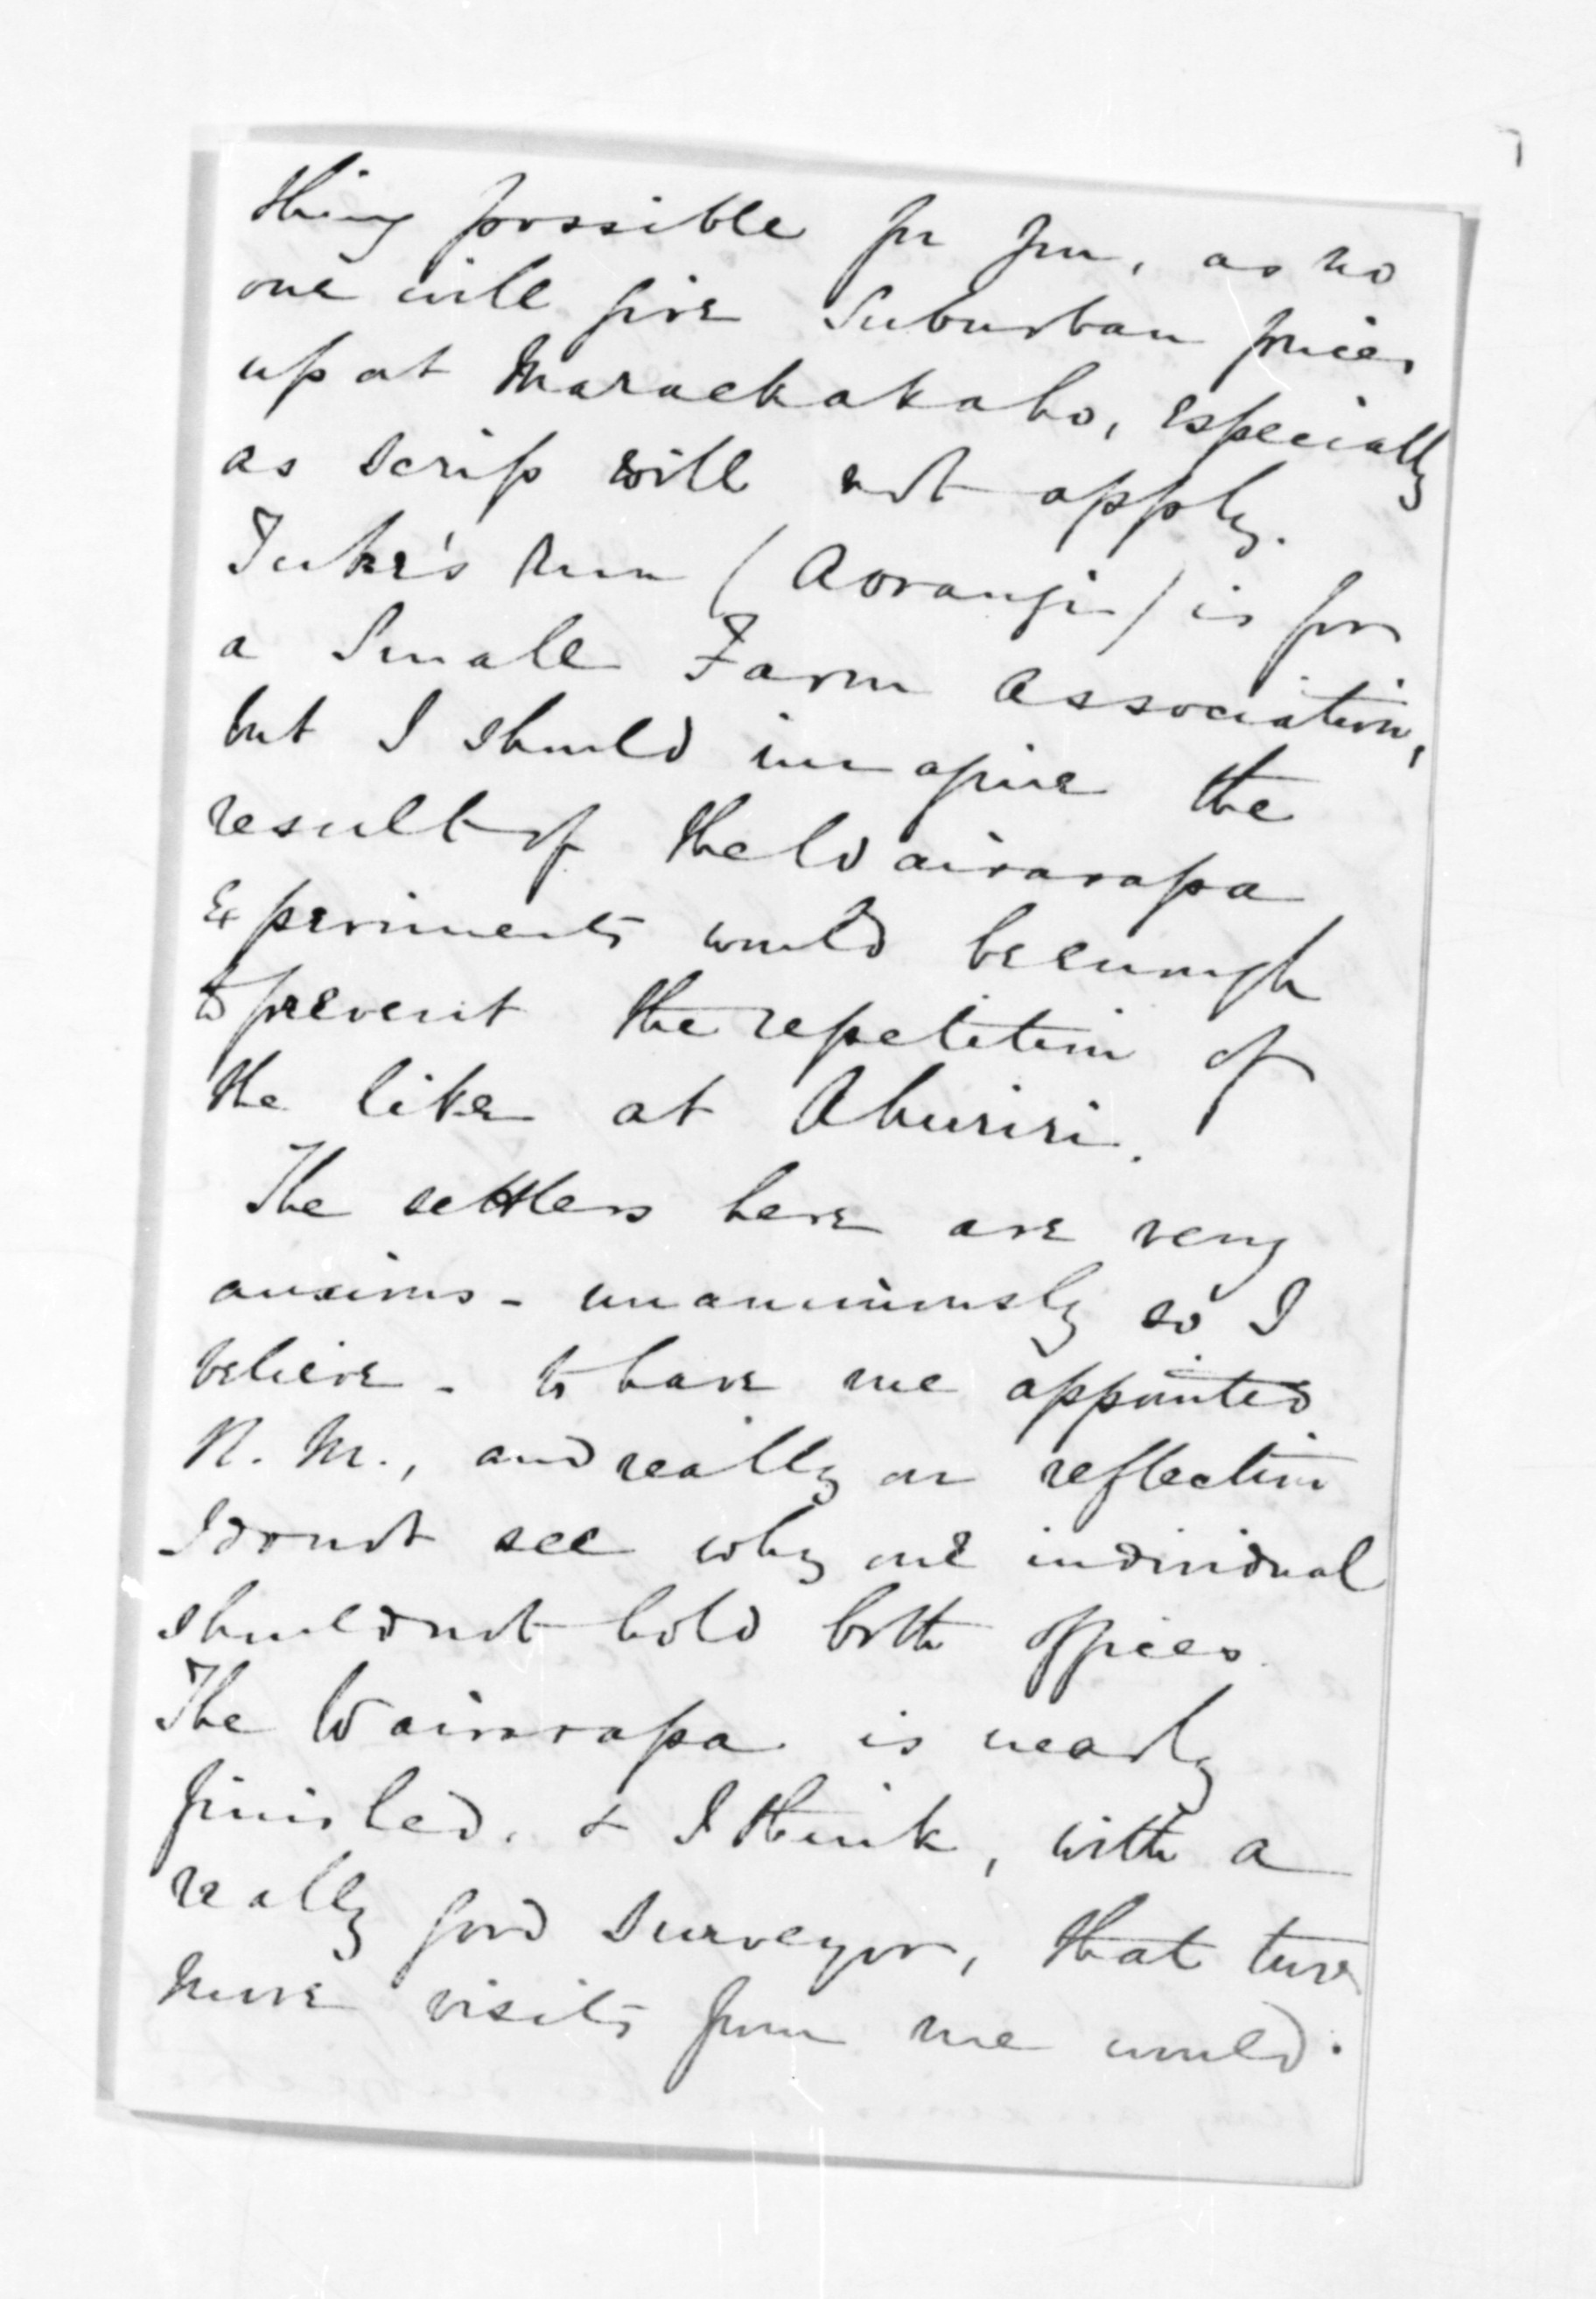 thing possible for you, as no
one will give Suburban prices
up at Maraekakaho, especially
as scrip will not apply.
Tuke's run (Aorangi) is for
a Small Farm Association,
but I should imagine the
result of the Wairarapa
Experiments would be enough
to prevent the repetition of
the like at Ahuriri.
The settlers here are very
anxious - unanimously so I
believe - to have me appointed
R. M., and really on reflection
I do not see why one individual
should not hold both offices.
The Wairarapa is nearly
finished, & I think, with a
really good surveyor, that two
more visits from me would